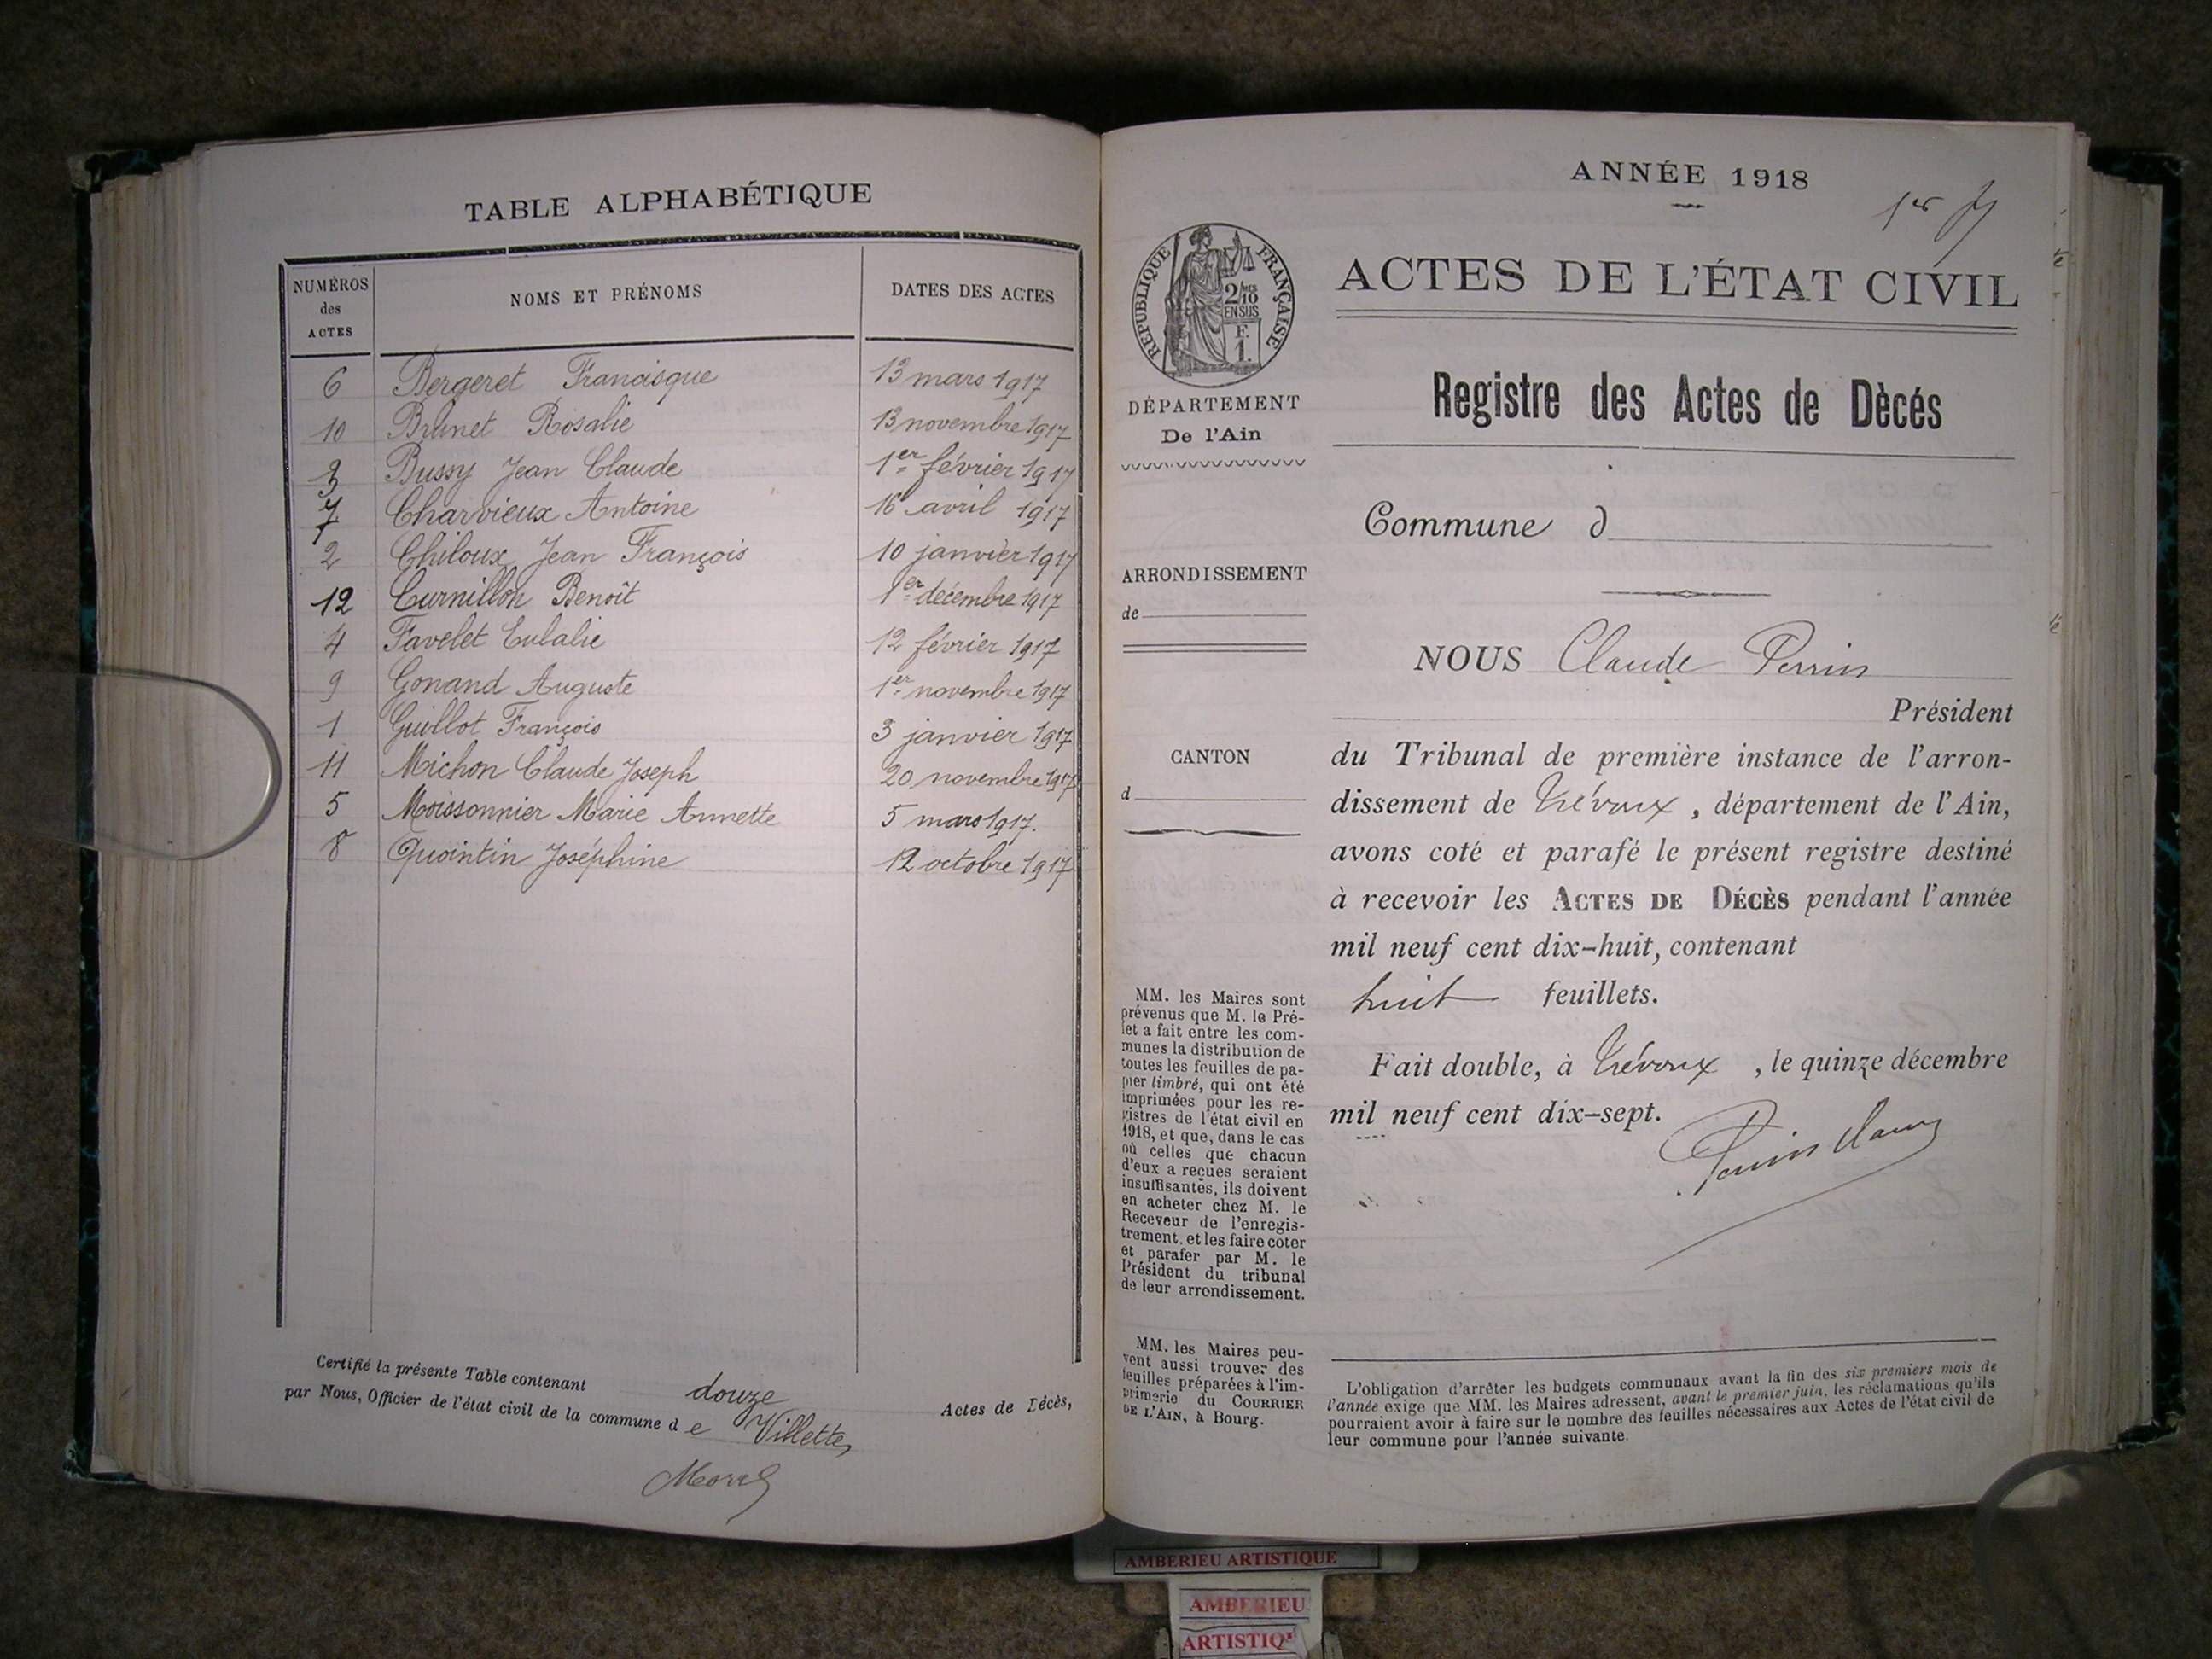 TABLE ALPHABÉTIQUE
NUMÉROS des ACTES NOMS ET PRÉNOMS DATES DES ACTES
6 Bergeret Francisque 13 mars 1917
10 Brunet Rosalie 13 novembre 1917
3 Bussy Jean Claude 1er février 1917
7 Charvieux Antoine 16 avril 1917
2 Chiloux Jean François 10 janvier 1917
12 Curnillon Benoît 1er décembre 1917
4 Favelet Eulalie 12 février 1917
9 Gonand Auguste 1er novembre 1917
1 Guillot François 3 janvier 1917
11 Michon Claude Joseph 20 novembre 1917
5 Moissonnier Marie Annette 5 mars 1917.
8 Quointin Joséphine 12 octobre 1917
Certifié la présente Table contenant douze Actes de Décès,
par Nous, Officier de l'état civil de la commune d e Villette,
Morel
ANNÉE 1918
1er
RÉPUBLIQUE FRANÇAISE
2/10
EN SUS
F.
1.
ACTES DE L'ÉTAT CIVIL
DÉPARTEMENT
De l'Ain
Registre des Actes de Dècés
Commune d
ARRONDISSEMENT
de
NOUS Claude Perrin
Président
CANTON
d
du Tribunal de première instance de l'arron-
dissement de Trévoux, département de l'Ain,
avons coté et parafé le présent registre destiné
à recevoir les ACTES DE DÉCÈS pendant l'année
mil neuf cent dix-huit, contenant
huit feuillets.
Fait double, à Trévoux, le quinze décembre
mil neuf cent dix-sept.
Perrin Claude
MM. les Maires sont
prévenus que M. le Pré-
fet a fait entre les com-
munes la distribution de
toutes les feuilles de pa-
pier timbré, qui ont été
imprimées pour les re-
gistres de l'état civil en
1918, et que, dans le cas
où celles que chacun
d'eux a reçues seraient
insuffisantes, ils doivent
en acheter chez M. le
Receveur de l'enregis-
trement, et les faire coter
et parafer par M. le
Président du tribunal
de leur arrondissement.
MM. les Maires peu-
vent aussi trouver des
feuilles préparées à l'im-
primerie du COURRIER
DE L'AIN, à Bourg.
L'obligation d'arrêter les budgets communaux avant la fin des six premiers mois de
l'année exige que MM. les Maires adressent, avant le premier juin, les réclamations qu'ils
pourraient avoir à faire sur le nombre des feuilles nécessaires aux Actes de l'état civil de
leur commune pour l'année suivante.
AMBERIEU ARTISTIQUE
AMBERIEU
ARTISTIQ